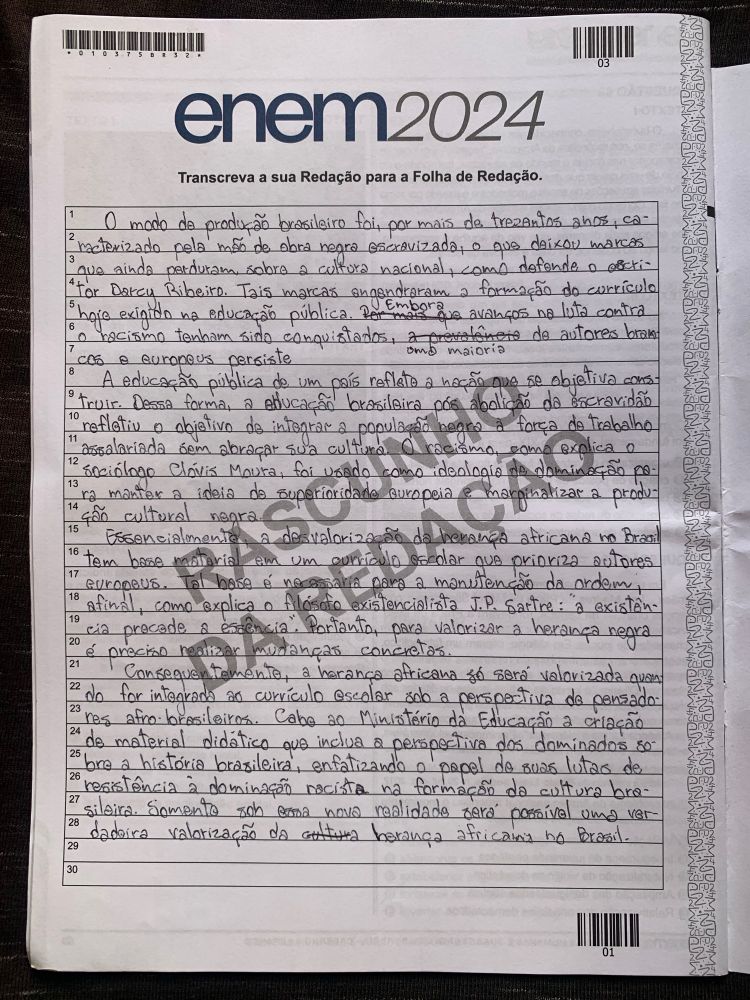 *010375883 2*
03
enem2024
Transcreva a sua Redação para a Folha de Redação.
1 O modo de produção brasileiro foi, por mais de trezentos anos, ca-
2 racterizado pela mão de obra negra escravizada, o que deixou marcas
3 que ainda perduram, sobre a cultura nacional, como defende o escri-
4 tor Darcy Ribeiro. Tais marcas engendraram a formação do currículo
5 hoje exigido na educação pública. Por mais que Embora avanços na luta contra
6 o racismo tenham sido conquistados, a prevalência de autores bran-
7 cos e europeus persiste como maioria
8 A educação pública de um país reflete a nação que se objetiva cons-
9 truir. Dessa forma, a educação brasileira pós abolição da escravidão
10 refletiu o objetivo de integrar a população negra à força de trabalho
11 assalariada sem abraçar sua cultura. O racismo, como explica o
12 sociólogo Clóvis Moura, foi usado como ideologia de dominação pa-
13 ra manter a ideia de superioridade europeia e marginalizar a produ-
14 ção cultural negra.
15 Essencialmente, a desvalorização da herança africana no Brasil
16 tem base material em um currículo escolar que prioriza autores
17 europeus. Tal base é necessária para a manutenção da ordem,
18 afinal, como explica o filósofo existencialista J.P. Sartre: "a existên-
19 cia precede a essência". Portanto, para valorizar a herança negra
20 é preciso realizar mudanças concretas.
21 Consequentemente, a herança africana só será valorizada quan-
22 do for integrada ao currículo escolar sob a perspectiva de pensado-
23 res afro-brasileiros. Cabe ao Ministério da Educação a criação
24 de material didático que inclua a perspectiva dos dominados so-
25 bre a história brasileira, enfatizando o papel de suas lutas de
26 resistência à dominação racista na formação da cultura bra-
27 sileira. Somente sob essa nova realidade será possível uma ver-
28 dadeira valorização da cultura herança africana no Brasil.
29
30
RASCUNHO
DA REDAÇÃO
01